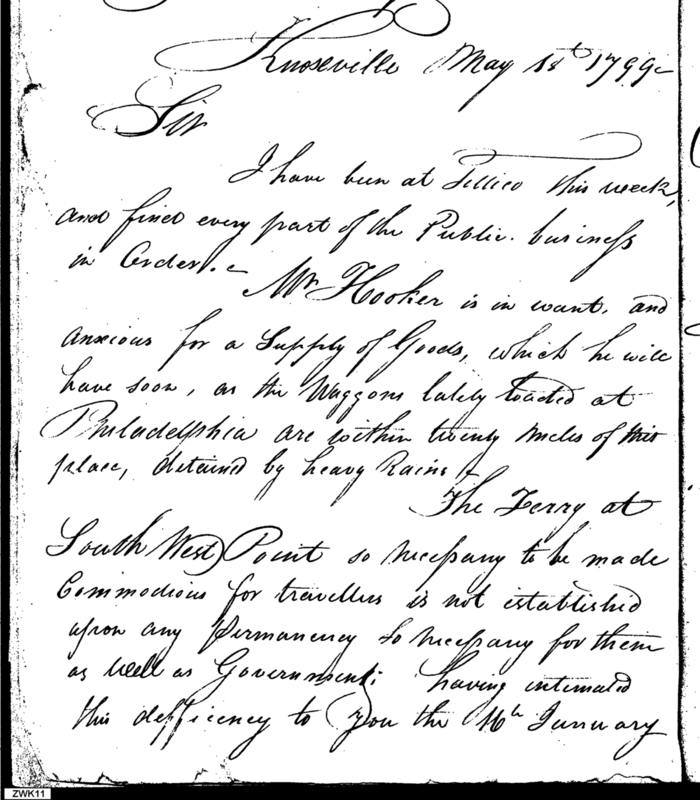 Knoxville May 18th 1799
Sir
I have been at Tellico this week,
and find every part of the Public business
in Order.
Mr Hooker is in want, and
anxious for a Supply of Goods, which he will
have soon, as the Waggons lately loaded at
Philadelphia are within twenty miles of this
place, detained by heavy Rains
The Ferry at
South West Point so necessary to be made
Commodious for travellers is not established
upon any Permanency so necessary for them
as well as Government; having intimated
this defficency to you the 16th January
ZWK11